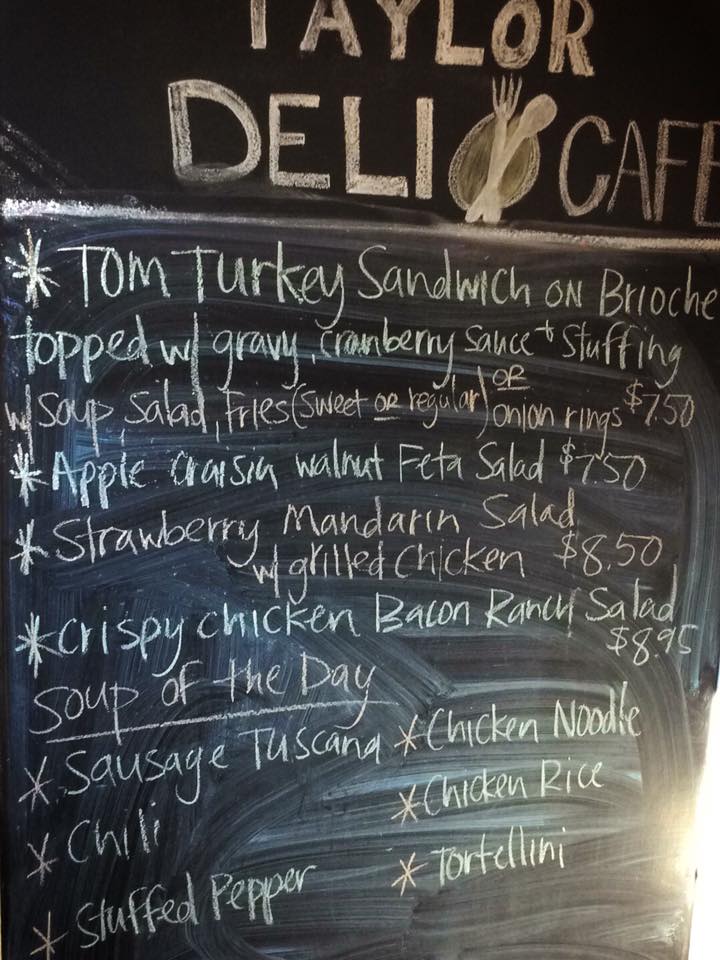 TAYLOR
DELI CAFE
* Tom Turkey Sandwich on Brioche
topped w/ gravy, cranberry sauce + Stuffing
w/ Soup, Salad, Fries (sweet or regular) OR onion rings $7.50
* Apple Craisin Walnut Feta Salad $7.50
* Strawberry Mandarin Salad
w/ grilled Chicken $8.50
* Crispy Chicken Bacon Ranch Salad
$8.95
Soup of the Day
* Sausage Tuscana
* Chili
* Stuffed Pepper
* Chicken Noodle
* Chicken Rice
* Tortellini